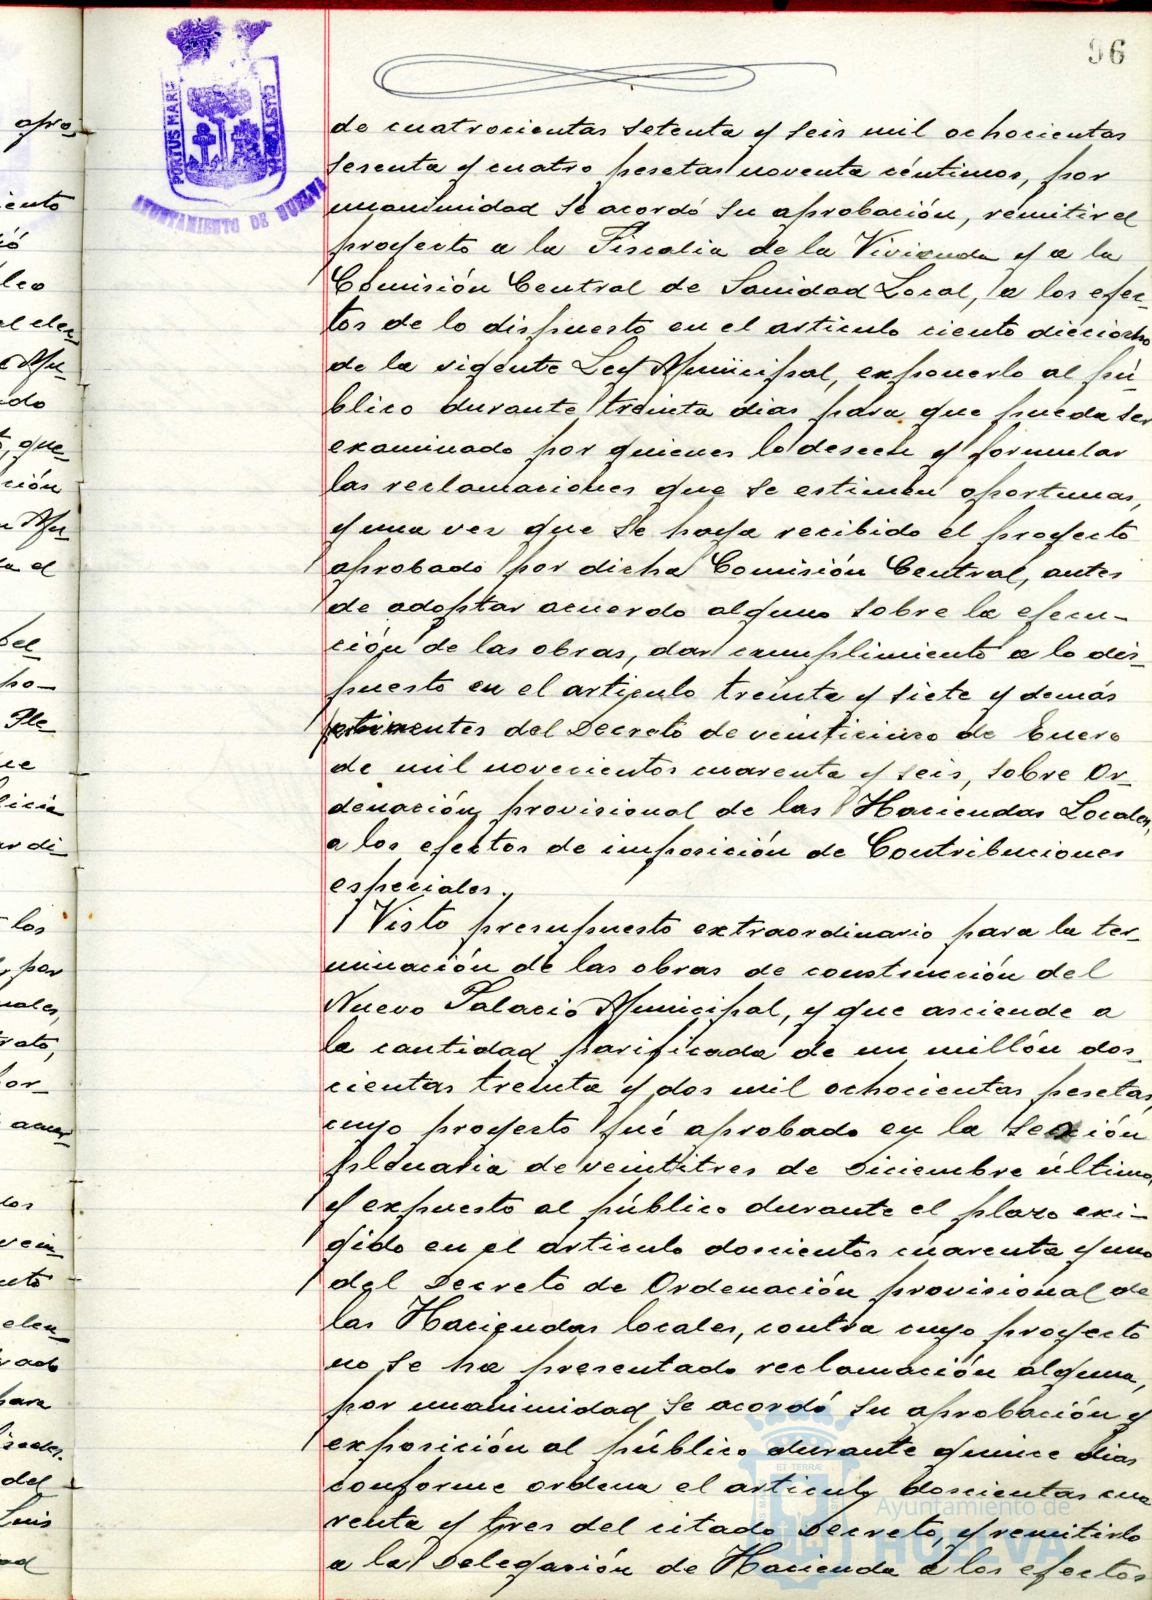 96
PORTUS MARIS
CUSTODIA
AYUNTAMIENTO DE HUELVA
de cuatrocientas setenta y seis mil ochocientas
sesenta y cuatro pesetas noventa céntimos, por
unanimidad se acordó su aprobación, remitir el
proyecto a la Fiscalia de la Vivienda y a la
Comisión Central de Sanidad Local, a los efec-
tos de lo dispuesto en el articulo ciento dieciocho
de la vigente Ley Municipal, exponerlo al pú-
blico durante treinta dias para que pueda ser
examinado por quienes lo deseen y formular
las reclamaciones que se estimen oportunas,
y una vez que se haya recibido el proyecto
aprobado por dicha Comisión Central, antes
de adoptar acuerdo alguno sobre la ejecu-
ción de las obras, dar cumplimiento a lo dis-
puesto en el articulo treinta y siete y demás
pertinentes del Decreto de veinticinco de Enero
de mil novecientos cuarenta y seis, sobre Or-
denación provisional de las Haciendas Locales,
a los efectos de imposición de Contribuciones
especiales.
Visto presupuesto extraordinario para la ter-
minación de las obras de construcción del
Nuevo Palacio Municipal, y que asciende a
la cantidad parificada de un millón dos-
cientas treinta y dos mil ochocientas pesetas,
cuyo proyecto fué aprobado en la sesión
plenaria de veintitres de Diciembre último,
y expuesto al público durante el plazo exi-
gido en el articulo doscientos cuarenta y uno
del Decreto de Ordenación provisional de
las Haciendas locales, contra cuyo proyecto
no se ha presentado reclamación alguna,
por unanimidad se acordó su aprobación y
exposición al público durante quince dias
conforme ordena el articulo doscientas cua
renta y tres del citado Decreto, y remitirlo
a la Delegación de Hacienda a los efectos
Ayuntamiento de
HUELVA